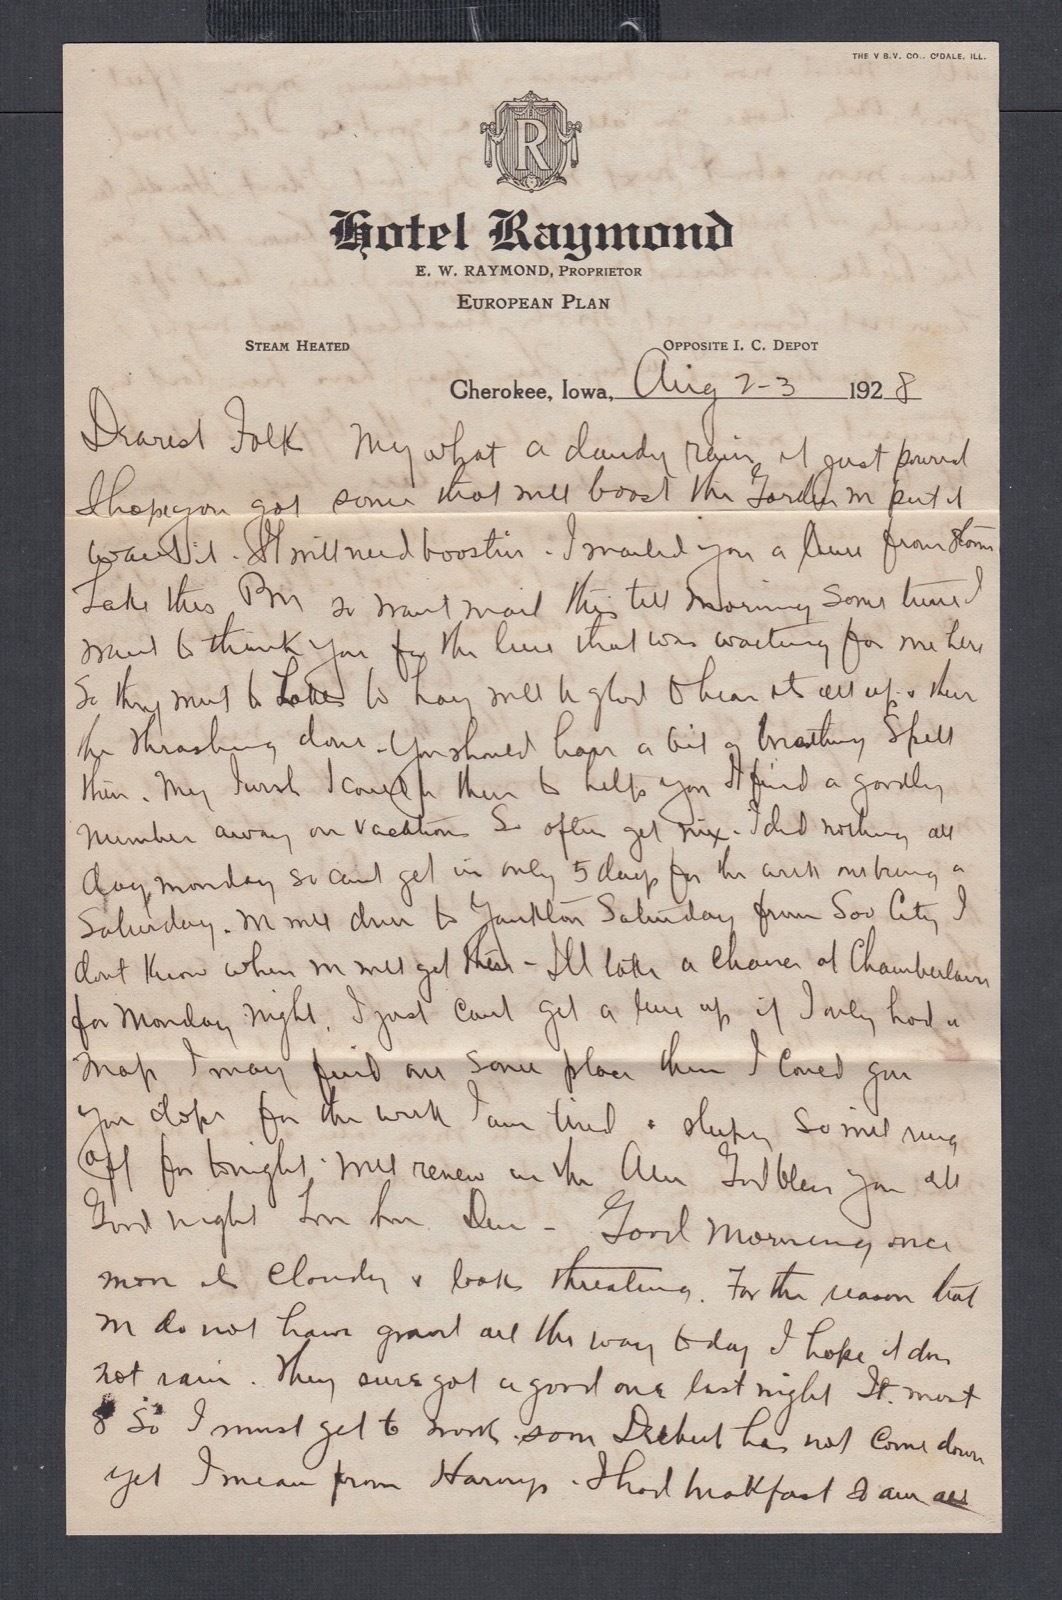 THE V B.V. CO., C'DALE, ILL.
R
Hotel Raymond
E. W. RAYMOND, PROPRIETOR
EUROPEAN PLAN
STEAM HEATED OPPOSITE I. C. DEPOT
Cherokee, Iowa, Aug 2-3 1928
Dearest Folk My what a dandy rain it just poured
I hope you got some that will boost the Garden
it. It will need boostin. I mailed you a line from Storm
Lake this Pm so wont mail this till morning some time I
want to thank you for the line that was waiting for me here
So they must be to hay will be glad to hear its all up & then
the thrashing done. You should have a bit of breathing Spell
then. My I wish I could be there to help you I find a goodly
number away on vacation So often get nix. I did nothing all
day monday so cant get in only 5 days for the week a
Saturday. We will drive to Yankton Saturday from Soo City I
dont know when we will get there - Ill take a chance at Chamberlain
for monday night. I just cant get a line up if I only had a
map I may find one some place then I could give
you dope for the week I am tired & sleepy So will ring
off for tonight. will renew in the Am God bless you all
Good night Good morning once
more its Cloudy & looks threating. For the reason that
we do not have gravel all the way today I hope it dos
not rain. They sure got a good one last night It. most
8 So I must get to work. has not come down
yet I mean from Harveys. I had breakfast & am